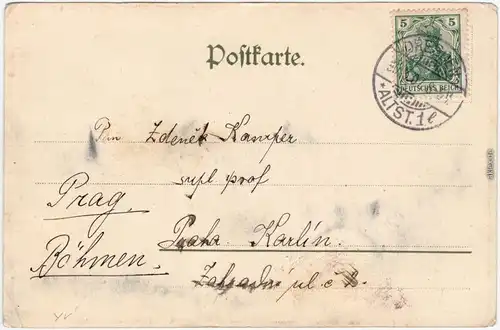 Postkarte.
5 5
DEUTSCHES REICH
DRESDEN
*ALTST.1 l
Pan Zdeněk Kamper
supl prof
Prag. Praha Karlín.
Böhmen. Zahradní ul. c